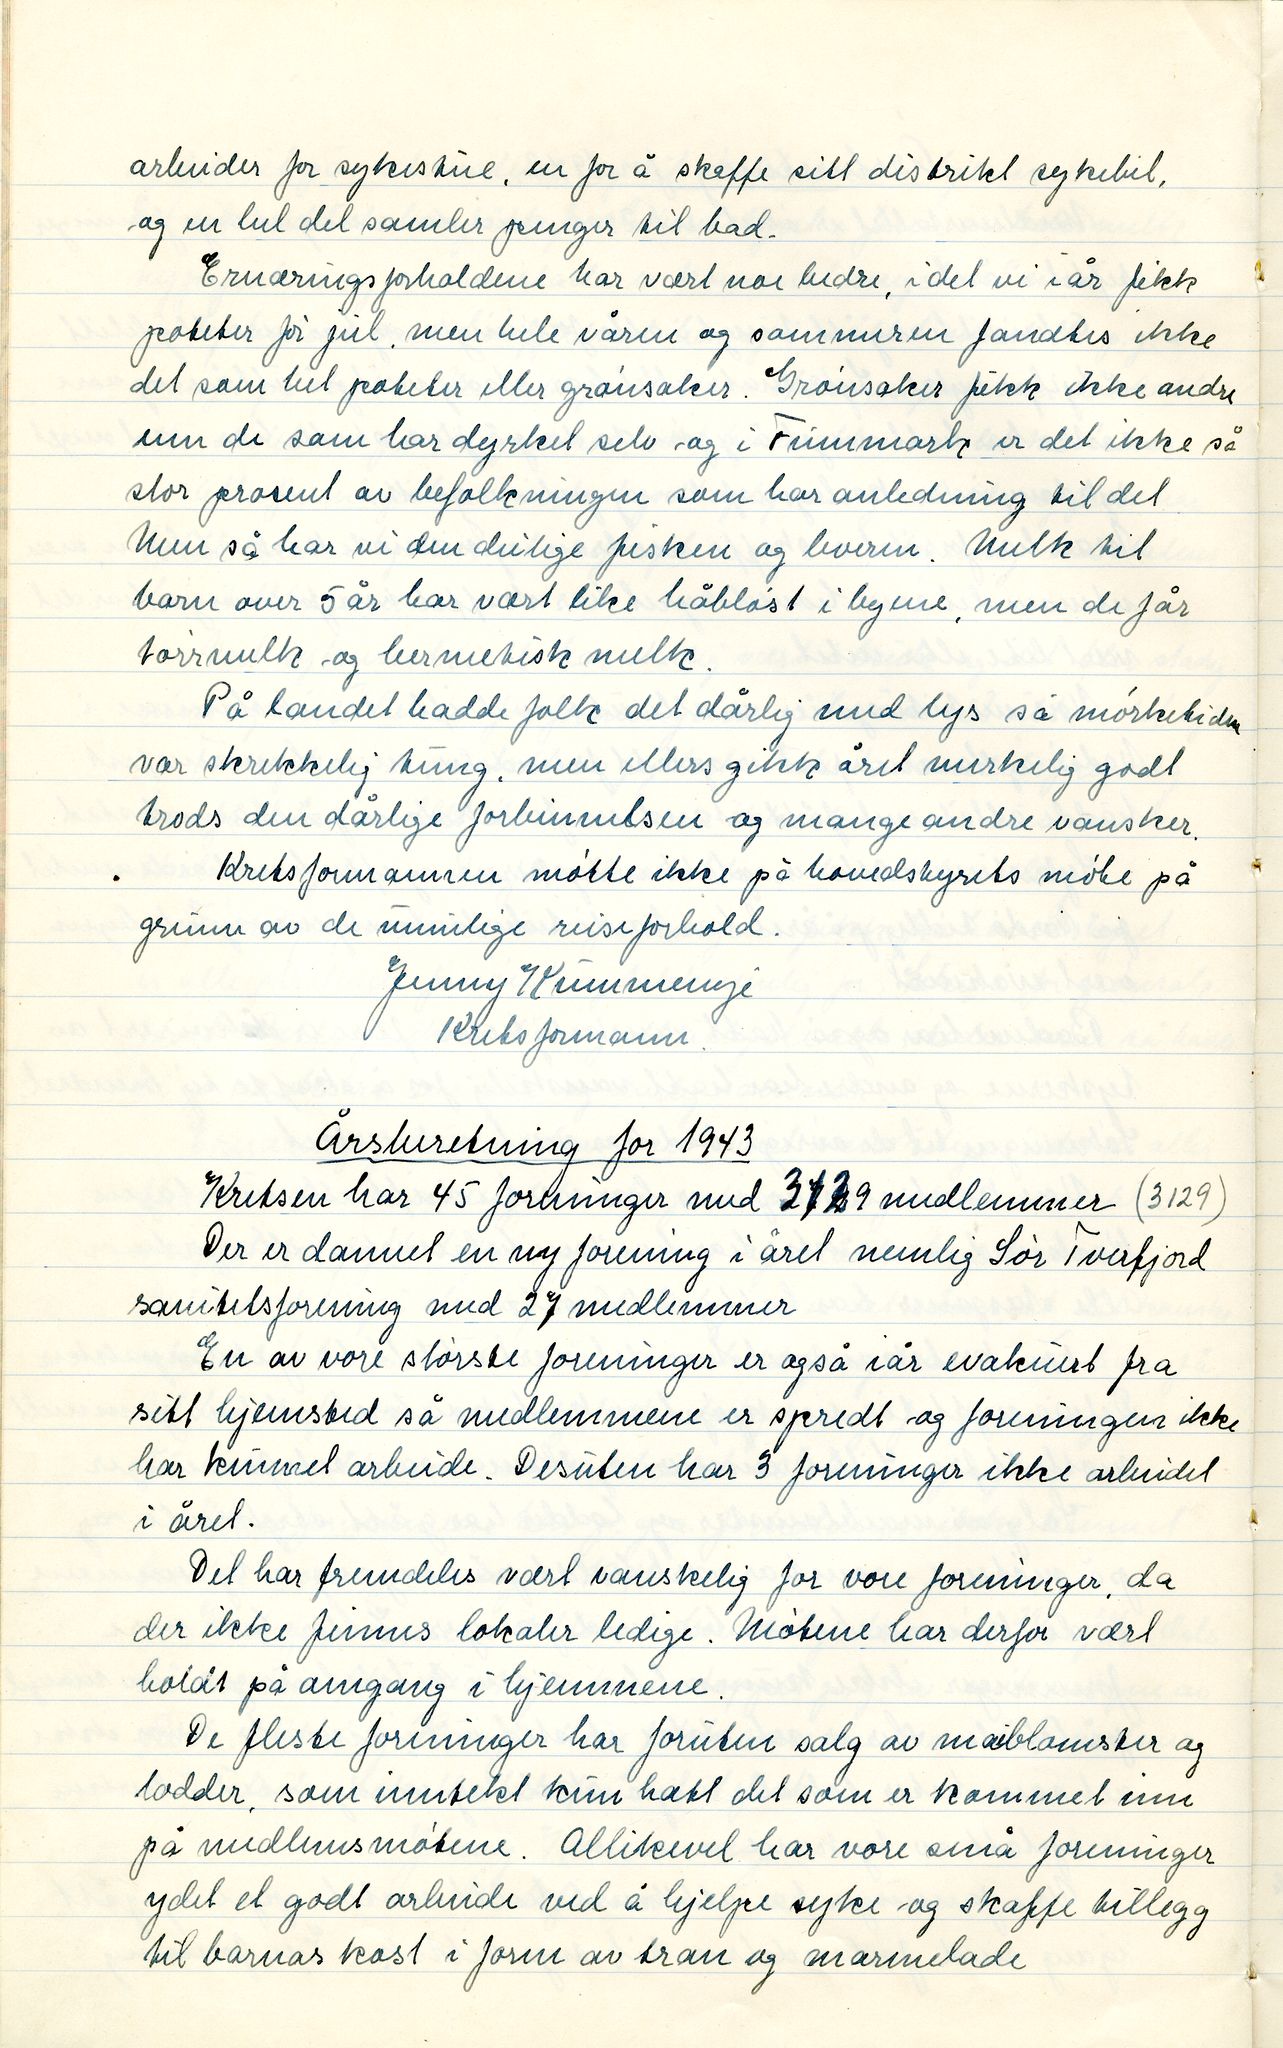 arbeider for sykestue, en for å skaffe sitt distrikt sykebil,
og en hel del samler penger til bad.
Ernæringsforholdene har vært noe bedre, idet vi i år fikk
poteter før jul, men hele våren og sommeren fandtes ikke
det som het poteter eller grønsaker. Grønsaker fikk ikke andre
enn de som har dyrket selv og i Finnmark er det ikke så
stor prosent av befolkningen som har anledning til det
Men så har vi den deilige fisken og leveren. Melk til
barn over 5 år har vært like håbløst i byene, men de får
tørrmelk og hermetisk melk.
På landet hadde folk det dårlig med lys så mørketiden
var skrekkelig tung, men ellers gikk året merkelig godt
trods den dårlige forbindelsen og mange andre vansker.
Kretsformannen møtte ikke på hovedstyrets møte på
grunn av de umulige reiseforhold.
Jenny Kummeneje
Kretsformann.
Årsberetning for 1943
Kretsen har 45 foreninger med 3129 medlemmer (3129)
Der er dannet en ny forening i året nemlig Sør Tverfjord
sanitetsforening med 27 medlemmer
En av vore største foreninger er også i år evakuert fra
sitt hjemsted så medlemmene er spredt og foreningen ikke
har kunnet arbeide. Desuten har 3 foreninger ikke arbeidet
i året.
Det har fremdeles vært vanskelig for vore foreninger, da
der ikke finnes lokaler ledige. Møtene har derfor vært
holdt på omgang i hjemmene.
De fleste foreninger har foruten salg av maiblomster og
lodder, som inntekt kun hatt det som er kommet inn
på medlemsmøtene. Allikevel har vore små foreninger
ydet et godt arbeide ved å hjelpe syke og skaffe tillegg
til barnas kost i form av tran og marmelade